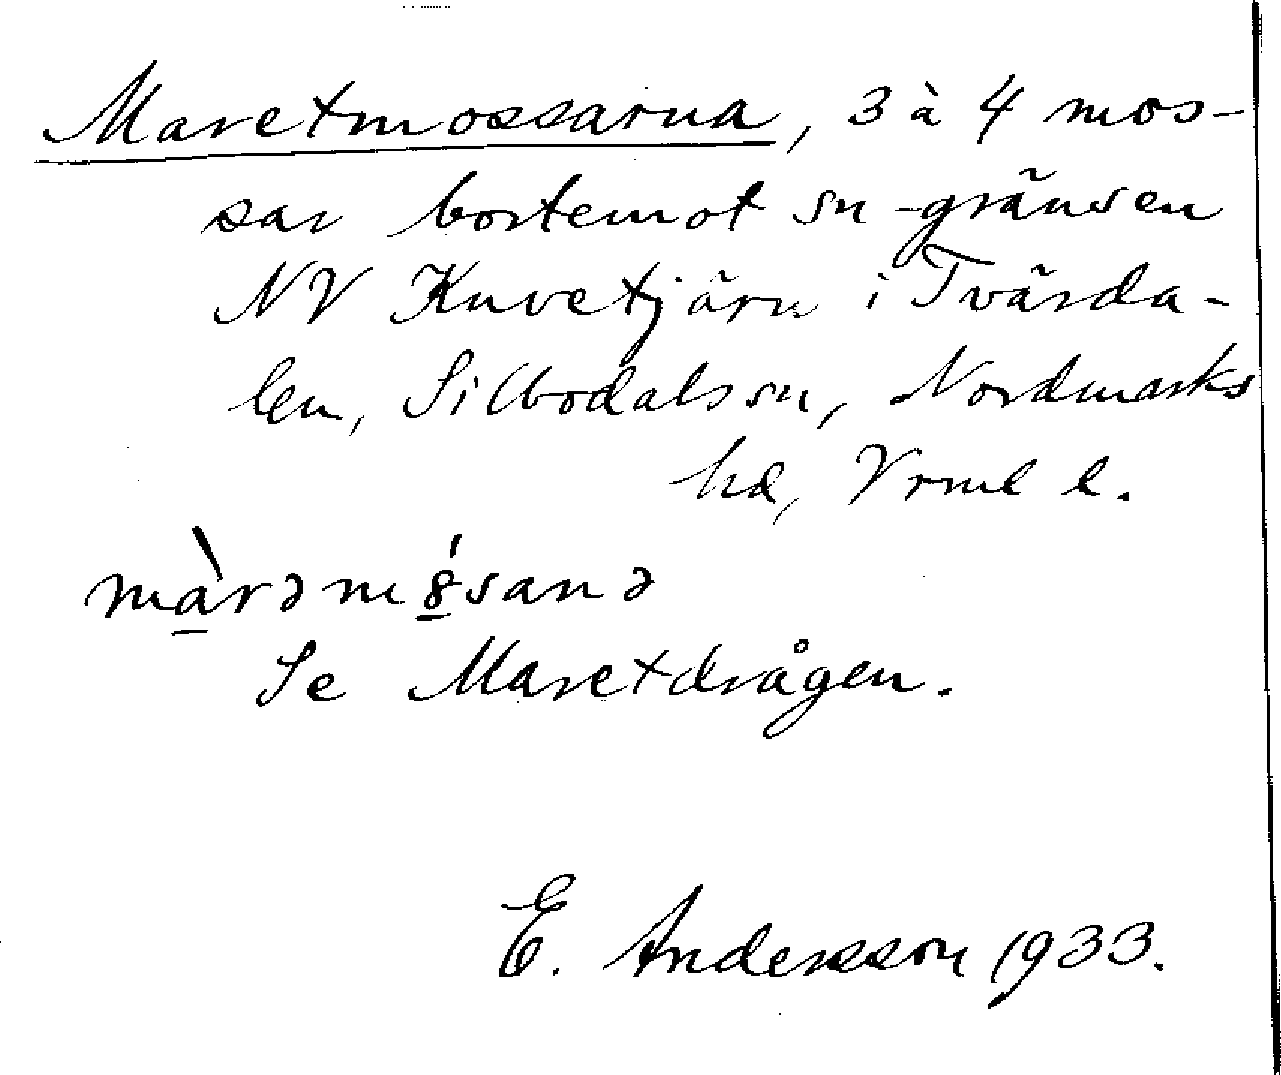 Maretmossarna, 3 à 4 mos-
sar bortemot sn-gränsen
NV Knvetjärn i Tvärda-
len, Silbodals sn, Nordmarks
hd, Vrml l.
màrəm8́sanə
Se Maretdrågen.
E. Andersson 1933.